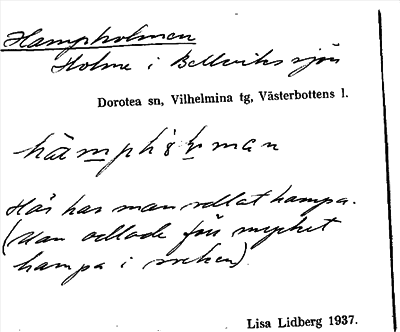 Hampholmen
Holme i Bellviks sjön
Dorotea sn, Vilhelmina tg, Västerbottens l.
Här har man odlat hampa.
(Man odlade för mycket
hampa i veken).
Lisa Lidberg 1937.